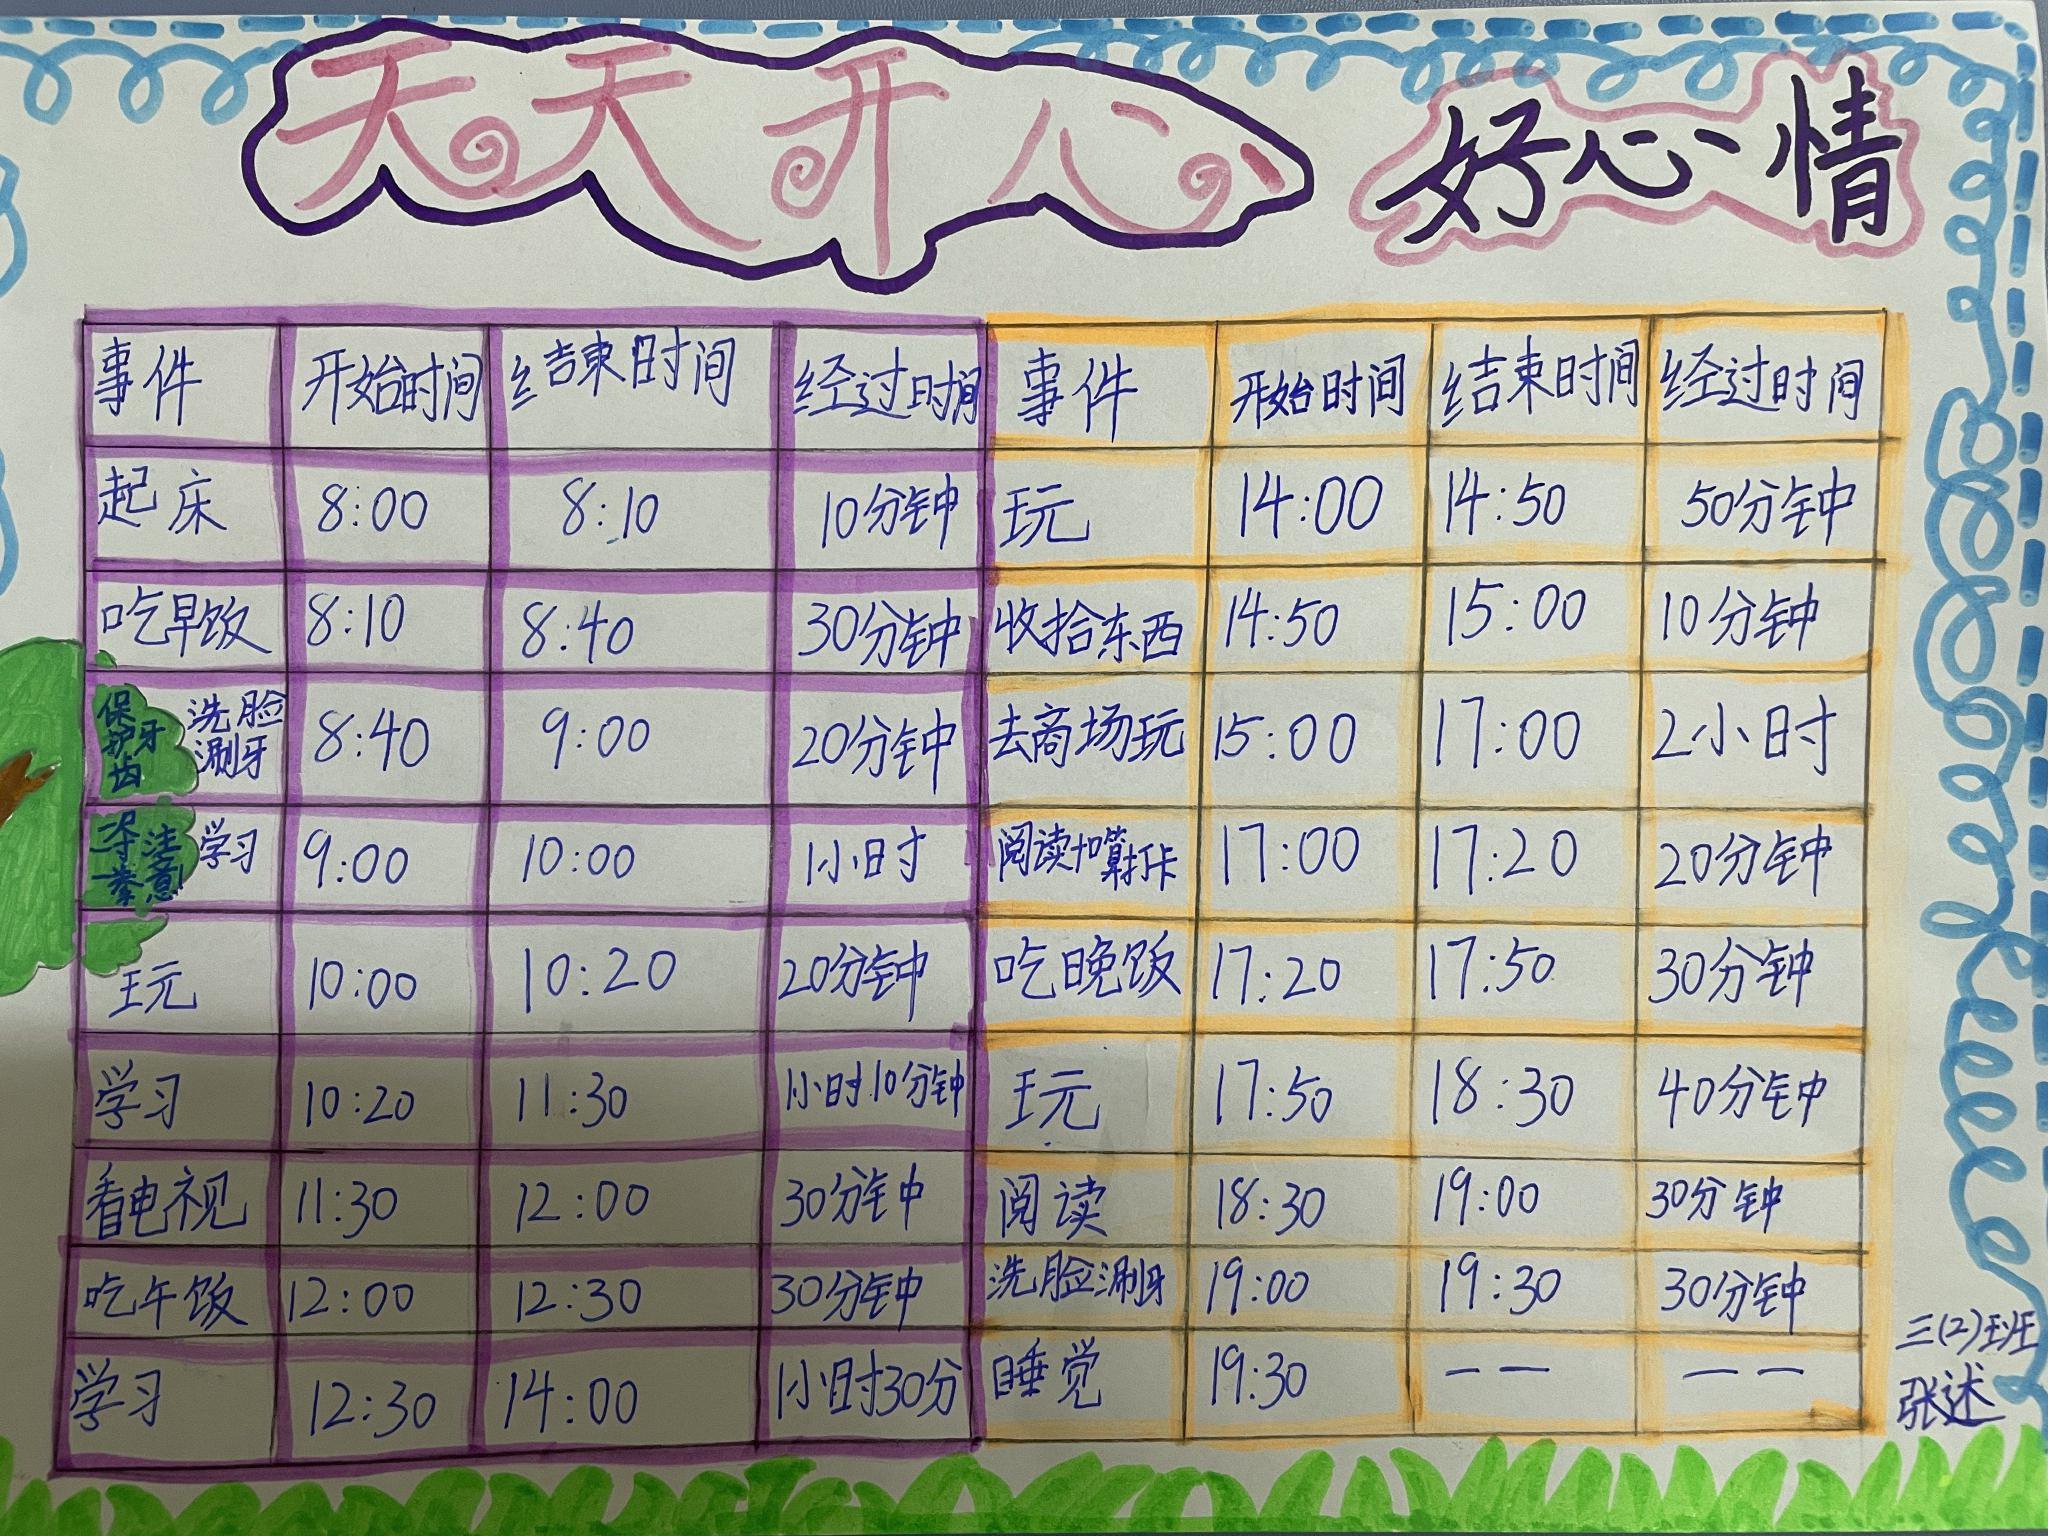 天天开心 好心情
事件 开始时间 结束时间 经过时间 事件 开始时间 结束时间 经过时间
起床 8:00 8:10 10分钟 玩 14:00 14:50 50分钟
吃早饭 8:10 8:40 30分钟 收拾东西 14:50 15:00 10分钟
保护牙齿 洗脸涮牙 8:40 9:00 20分钟 去商场玩 15:00 17:00 2小时
学习 9:00 10:00 1小时 阅读+口算打卡 17:00 17:20 20分钟
玩 10:00 10:20 20分钟 吃晚饭 17:20 17:50 30分钟
学习 10:20 11:30 1小时10分钟 玩 17:50 18:30 40分钟
看电视 11:30 12:00 30分钟 阅读 18:30 19:00 30分钟
吃午饭 12:00 12:30 30分钟 洗脸涮牙 19:00 19:30 30分钟
学习 12:30 14:00 1小时30分 睡觉 19:30 —— ——
三(2)班
张述